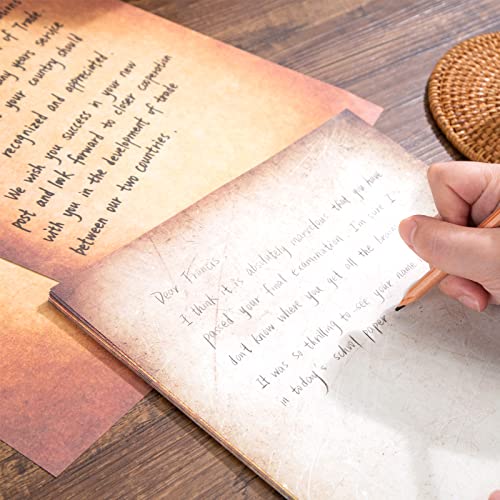 of Trade
years service
your country should
recognized and appreciated.
We wish you success in your new
post and look forward to closer cooperation
with you in the development of trade
between our two countries.
Dear Francis
I think it is absolutely marvelous that you have
passed your final examination. I'm sure I
don't know where you got all the brains
It was so thrilling to see your name
in today's schwl paper